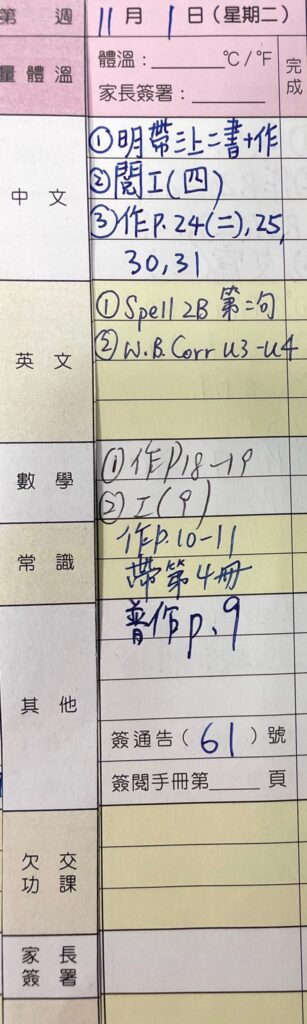 第 週 11月1日(星期二)
量體溫 體溫:______°C/°F 完成
家長簽署:______
中文 ①明帶三上二書+作
②閱工(四)
③作P.24(二),25,
30,31
英文 ①Spell 2B 第二句
②W.B. Corr U3-U4
數學 ①作P18-19
②工(9)
常識 作P.10-11
帶第4冊
其他 普作p.9
簽通告(61)號
簽閱手冊第____頁
欠交功課
家長簽署